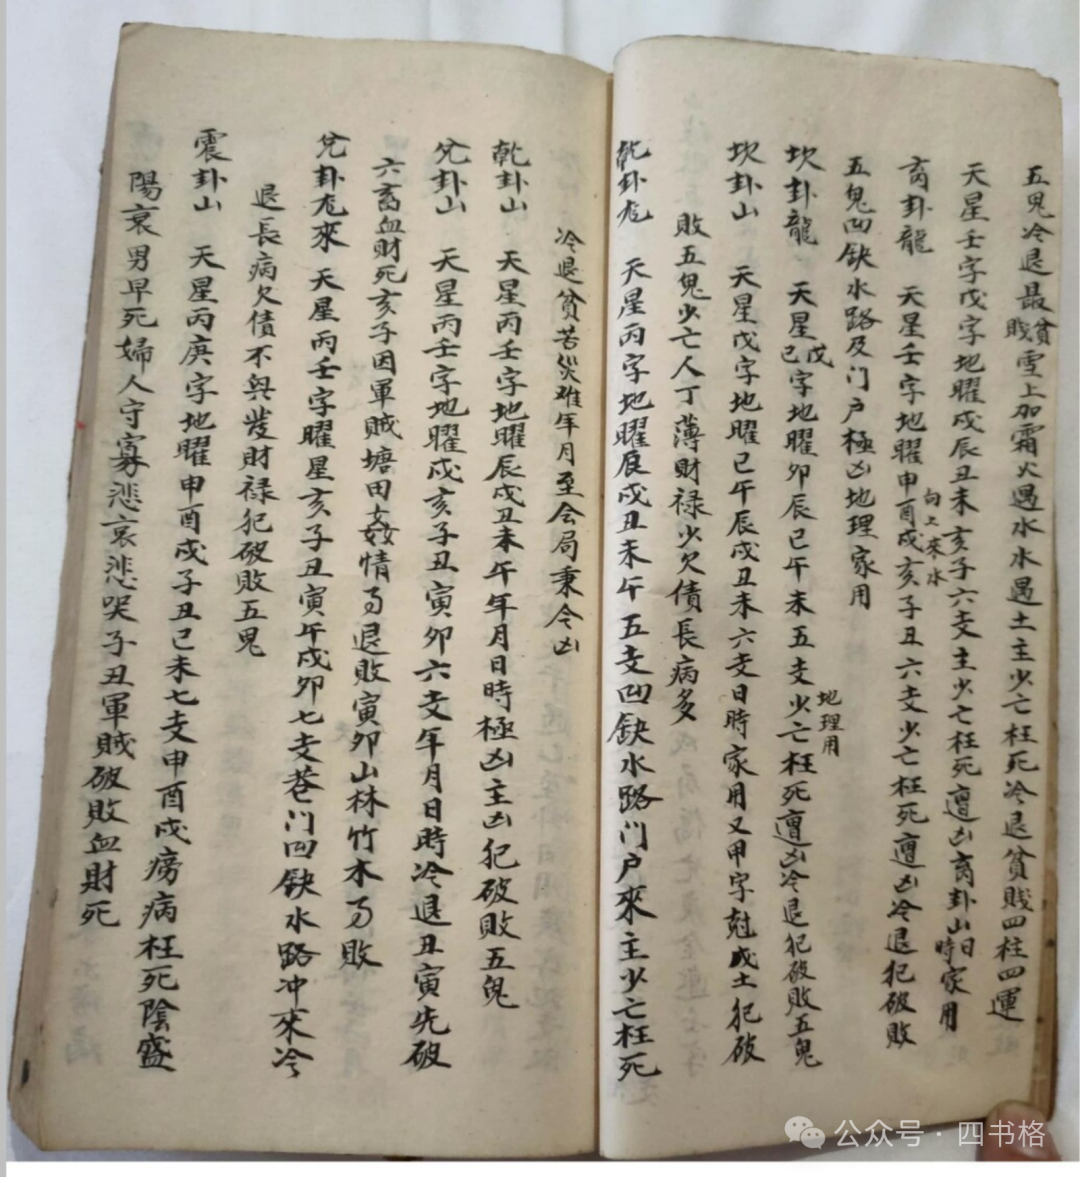 五鬼冷退最貧賤雪上加霜火遇水水遇土主少亡枉死冷退貧賤四柱四運
天星壬字戊字地曜戍辰丑未亥子六支主少亡枉死遭凶离卦山日時家用
离卦龍 天星壬字地曜申酉戍亥子丑六支少亡枉死遭凶冷退犯破敗
向上來水
五鬼凹缺水路及门户極凶地理家用
坎卦龍 天星戊己字地曜卯辰巳午未五支少亡枉死遭凶冷退犯破敗五鬼
地理用
坎卦山 天星戊字地曜巳午辰戍丑未六支日時家用又甲字尅戍土犯破
敗五鬼少亡人丁薄財禄少欠债長病多
乾卦尨 天星丙字地曜辰戍丑未午五支凹缺水路门户來主少亡枉死
冷退貧苦災难年月至会局秉令凶
乾卦山 天星丙壬字地曜辰戍丑未午年月日時極凶主凶犯破敗五鬼
兌卦山 天星丙壬字地曜戍亥子丑寅卯六支年月日時冷退丑寅先破
六畜血財死亥子因軍賊塘田姦情而退敗寅卯山林竹木而敗
兌卦尨來 天星丙壬字曜星亥子丑寅午戍卯七支巷门凹缺水路冲來冷
退長病欠债不興發財禄犯破敗五鬼
震卦山 天星丙庚字地曜申酉戍子丑巳未七支申酉戍癆病枉死陰盛
陽衰男早死婦人守寡悲哀悲哭子丑軍賊破敗血財死
公众号·四书格